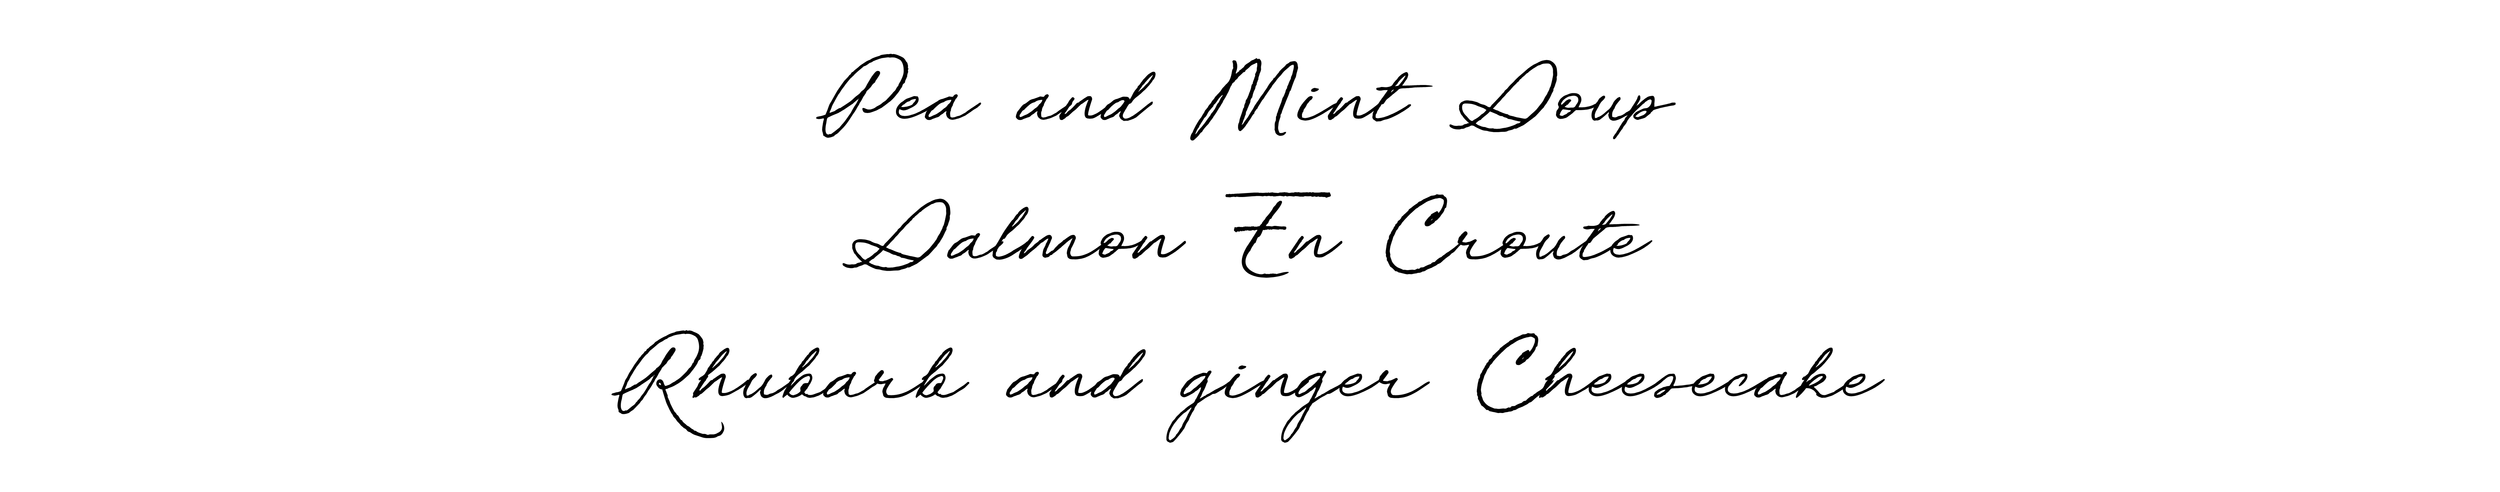 Pea and Mint Soup
Salmon En Croute
Rhubarb and ginger Cheesecake